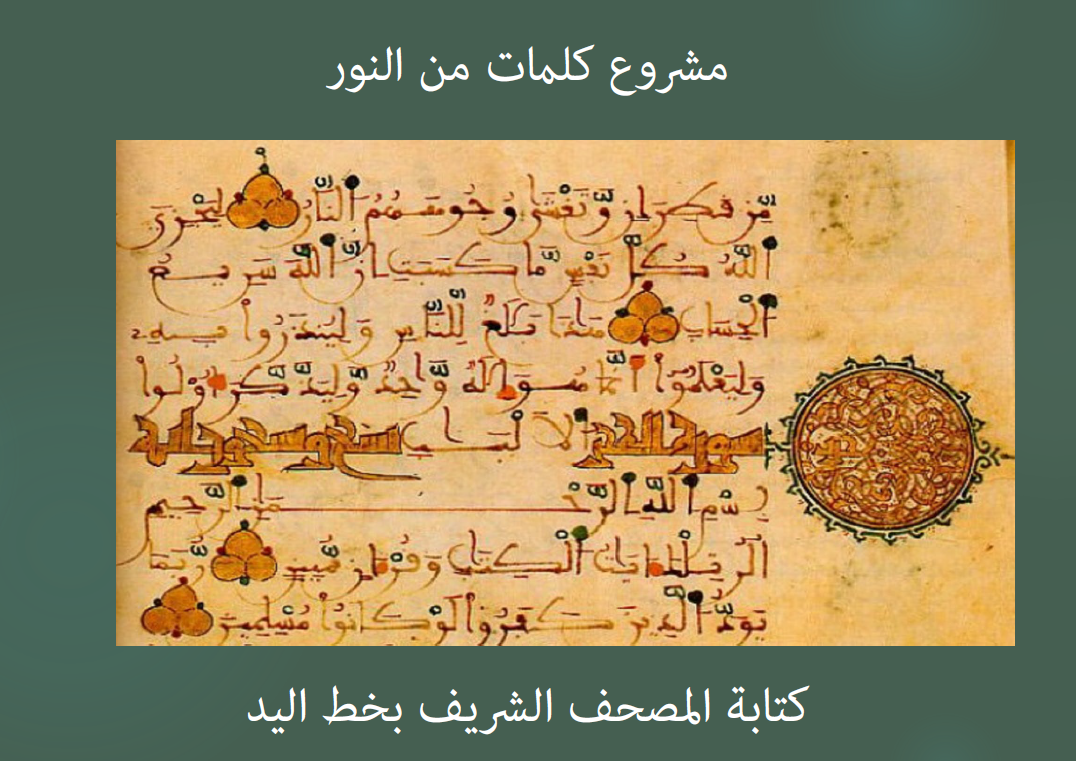 مشروع كلمات من النور
مِّن قَطِرَانٍ وَتَغْشَىٰ وُجُوهَهُمُ النَّارُ لِيَجْزِيَ
اللَّهُ كُلَّ نَفْسٍ مَّا كَسَبَتْ إِنَّ اللَّهَ سَرِيعُ
الْحِسَابِ هَٰذَا بَلَاغٌ لِّلنَّاسِ وَلِيُنذَرُوا بِهِ
وَلِيَعْلَمُوا أَنَّمَا هُوَ إِلَٰهٌ وَاحِدٌ وَلِيَذَّكَّرَ أُولُوا
سورة الحجر الْأَلْبَابِ تسع وتسعون
بِسْمِ اللَّهِ الرَّحْمَٰنِ الرَّحِيمِ
الر تِلْكَ آيَاتُ الْكِتَابِ وَقُرْآنٍ مُّبِينٍ رُّبَمَا
يَوَدُّ الَّذِينَ كَفَرُوا لَوْ كَانُوا مُسْلِمِينَ
كتابة المصحف الشريف بخط اليد